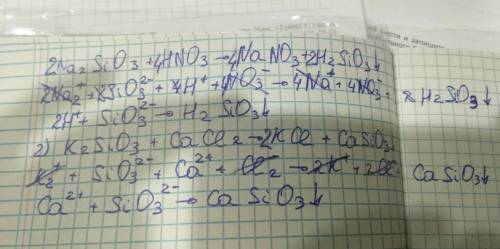 2Na₂SiO₃ + 4HNO₃ → 4NaNO₃ + 2H₂SiO₃↓
2Na₂⁺ + 2SiO₃²⁻ + 4H⁺ + 4NO₃⁻ → 4Na⁺ + 4NO₃⁻ + 2H₂SiO₃↓
2H⁺ + SiO₃²⁻ → H₂SiO₃↓
2) K₂SiO₃ + CaCl₂ → 2KCl + CaSiO₃↓
K₂⁺ + SiO₃²⁻ + Ca²⁺ + Cl₂⁻ → 2K⁺ + 2Cl⁻ CaSiO₃↓
Ca²⁺ + SiO₃²⁻ → CaSiO₃↓